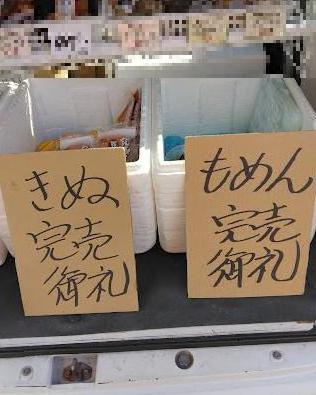 きぬ
完売
御礼
もめん
完売
御礼